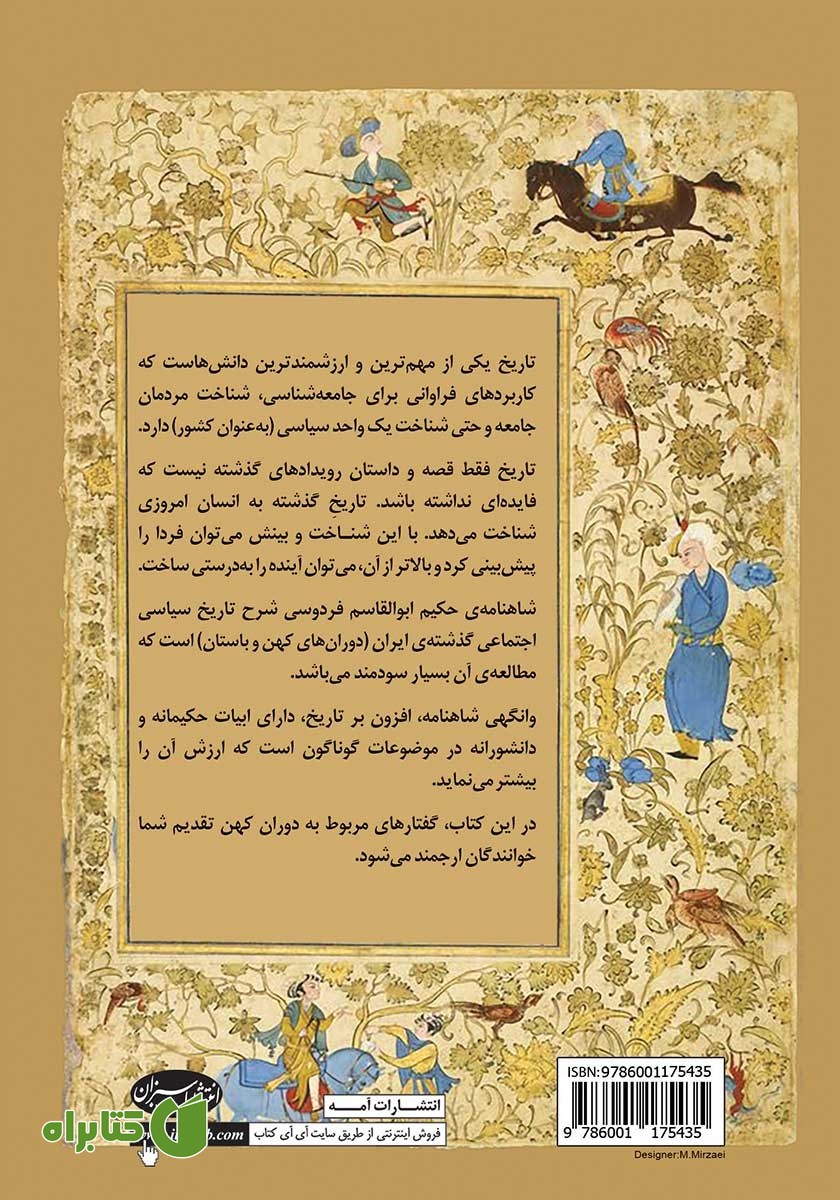 تاریخ یکی از مهم‌ترین و ارزشمندترین دانش‌هاست که
کاربردهای فراوانی برای جامعه‌شناسی، شناخت مردمان
جامعه و حتی شناخت یک واحد سیاسی (به‌عنوان کشور) دارد.
تاریخ فقط قصه و داستان رویدادهای گذشته نیست که
فایده‌ای نداشته باشد. تاریخِ گذشته به انسان امروزی
شناخت می‌دهد. با این شناخت و بینش می‌توان فردا را
پیش‌بینی کرد و بالاتر از آن، می‌توان آینده را به‌درستی ساخت.
شاهنامه‌ی حکیم ابوالقاسم فردوسی شرح تاریخ سیاسی
اجتماعی گذشته‌ی ایران (دوران‌های کهن و باستان) است که
مطالعه‌ی آن بسیار سودمند می‌باشد.
وانگهی شاهنامه، افزون بر تاریخ، دارای ابیات حکیمانه و
دانشورانه در موضوعات گوناگون است که ارزش آن را
بیشتر می‌نماید.
در این کتاب، گفتارهای مربوط به دوران کهن تقدیم شما
خوانندگان ارجمند می‌شود.
انتشارات سبزان
کتابراه
.com
انتشارات آمه
فروش اینترنتی از طریق سایت آی آی کتاب
ISBN: 9786001175435
9 786001 175435
Designer:M.Mirzaei